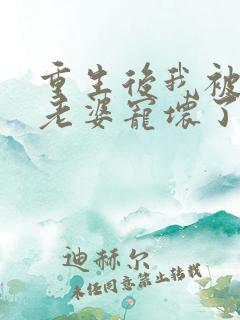 重生后我被
老婆宠坏了
迪赫尔
未经同意禁止转载